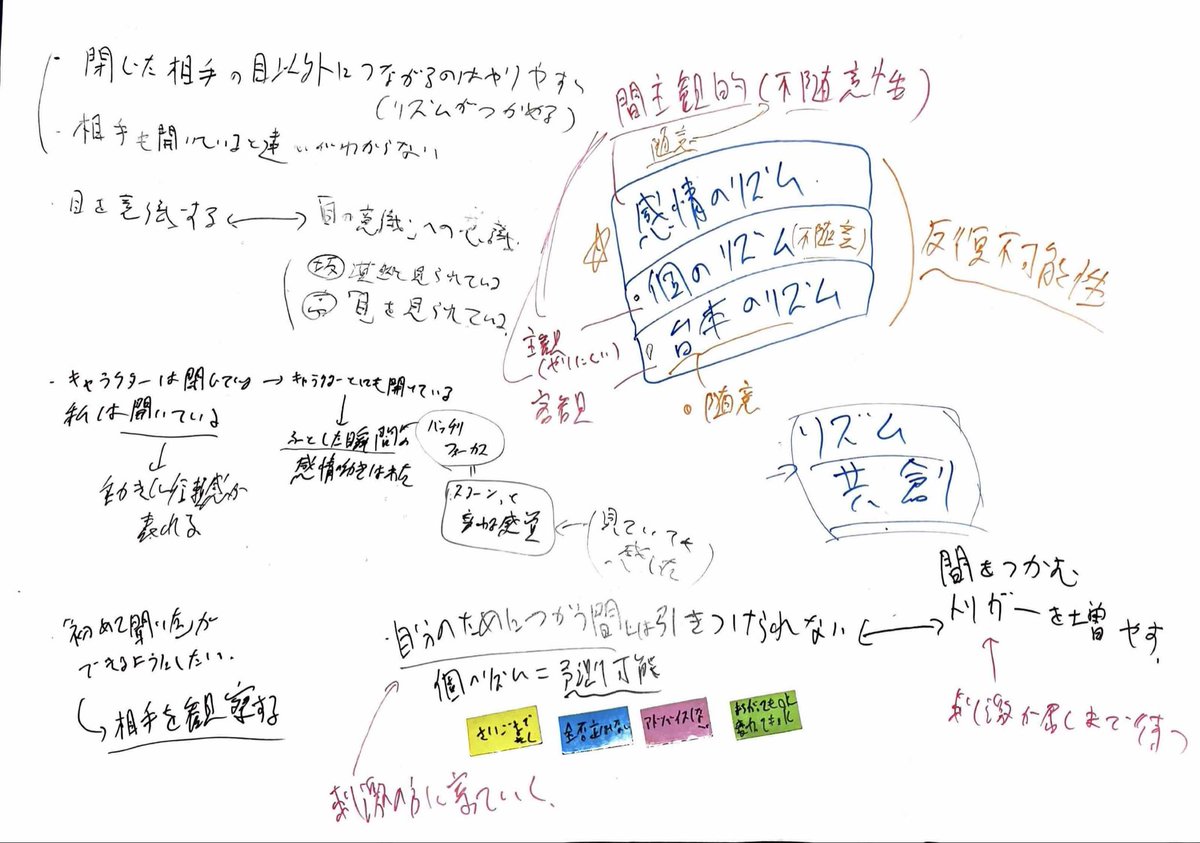 ・閉じた相手の目以外につながるのはやりやすい
(リズムがつかめる)
・相手も開いていると違いがわからない
・目を意識する ←→ 「目の意識」への意識
見られている
目を見られている
・キャラクターは閉じている → キャラクターとしても開けている
私は開いている
↓
動きに 感が
表れる
↓
ふとした瞬間の
感情の動きはわれた
バッチリ
フォーカス
見ていても
感じた
間主観的(不随意性)
随意
感情のリズム
個のリズム(不随意)
台本のリズム
主観
(やりにくい)
客観
随意
反復不可能性
⇒ リズム
共創
間をつかむ
トリガーを増やす
刺激が届くまで待つ
「初めて聞いた」が
できるようにしたい
相手を観察する
・自分のためにつかう間には引きつけられない ←→
個のリズム=予測可能
さいごまで
全否定はしない
アドバイスしない
まちがってもOK
刺激の方に寄っていく